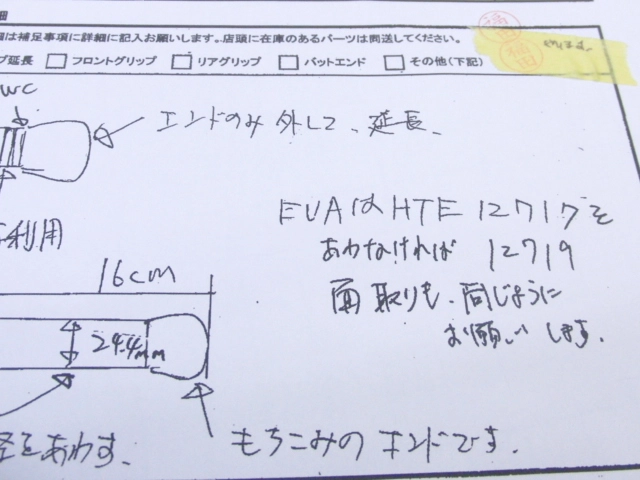 細
細は補足事項に詳細に記入お願いします。店頭に在庫のあるパーツは同送してください。
プ延長 □ フロントグリップ □ リアグリップ □ バットエンド □ その他(下記)
WC
エンドのみ外して、延長、
EVAはHTE 12717を
あわなければ 12719
面取りも、同じように
お願いします。
利用
16cm
24.4mm
径をあわす.
もちこみのエンドです.